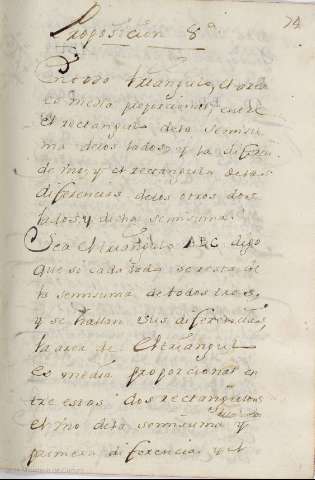 74
Proposicion 8ª
En todo triangulo, el area
es media proporcional, entre
el rectangulo dela semisu
ma delos lados, y la diferen
de uno; y el rectangulo delas
diferencias delos otros dos
lados, y dicha semisuma.
Sea el triangulo ABC digo
que si cada lado se resta de
la semisuma de todos tres,
y se hallan sus diferencias,
la area de el triangul
es media proporcional en
tre estas dos rectangulos
el uno dela semisuma y
primera diferencia y el